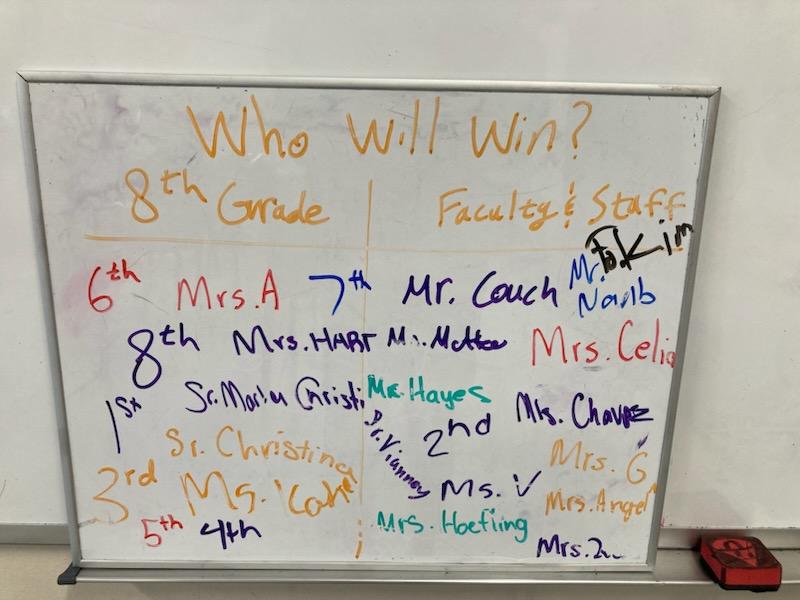 Who Will Win?
8th Grade
Faculty & Staff
6th Mrs. A
8th Mrs. HART
1st Sr. Christi
Sr. Christina
3rd Ms.
5th 4th
7th Mr. Couch Mr.
Kim
Mrs. Celia
Mr. Hayes
2nd Ms.
Sr. Vianney
Mrs. G
Ms. V
Mrs. Angel
Mrs. Hoefling
Mrs.